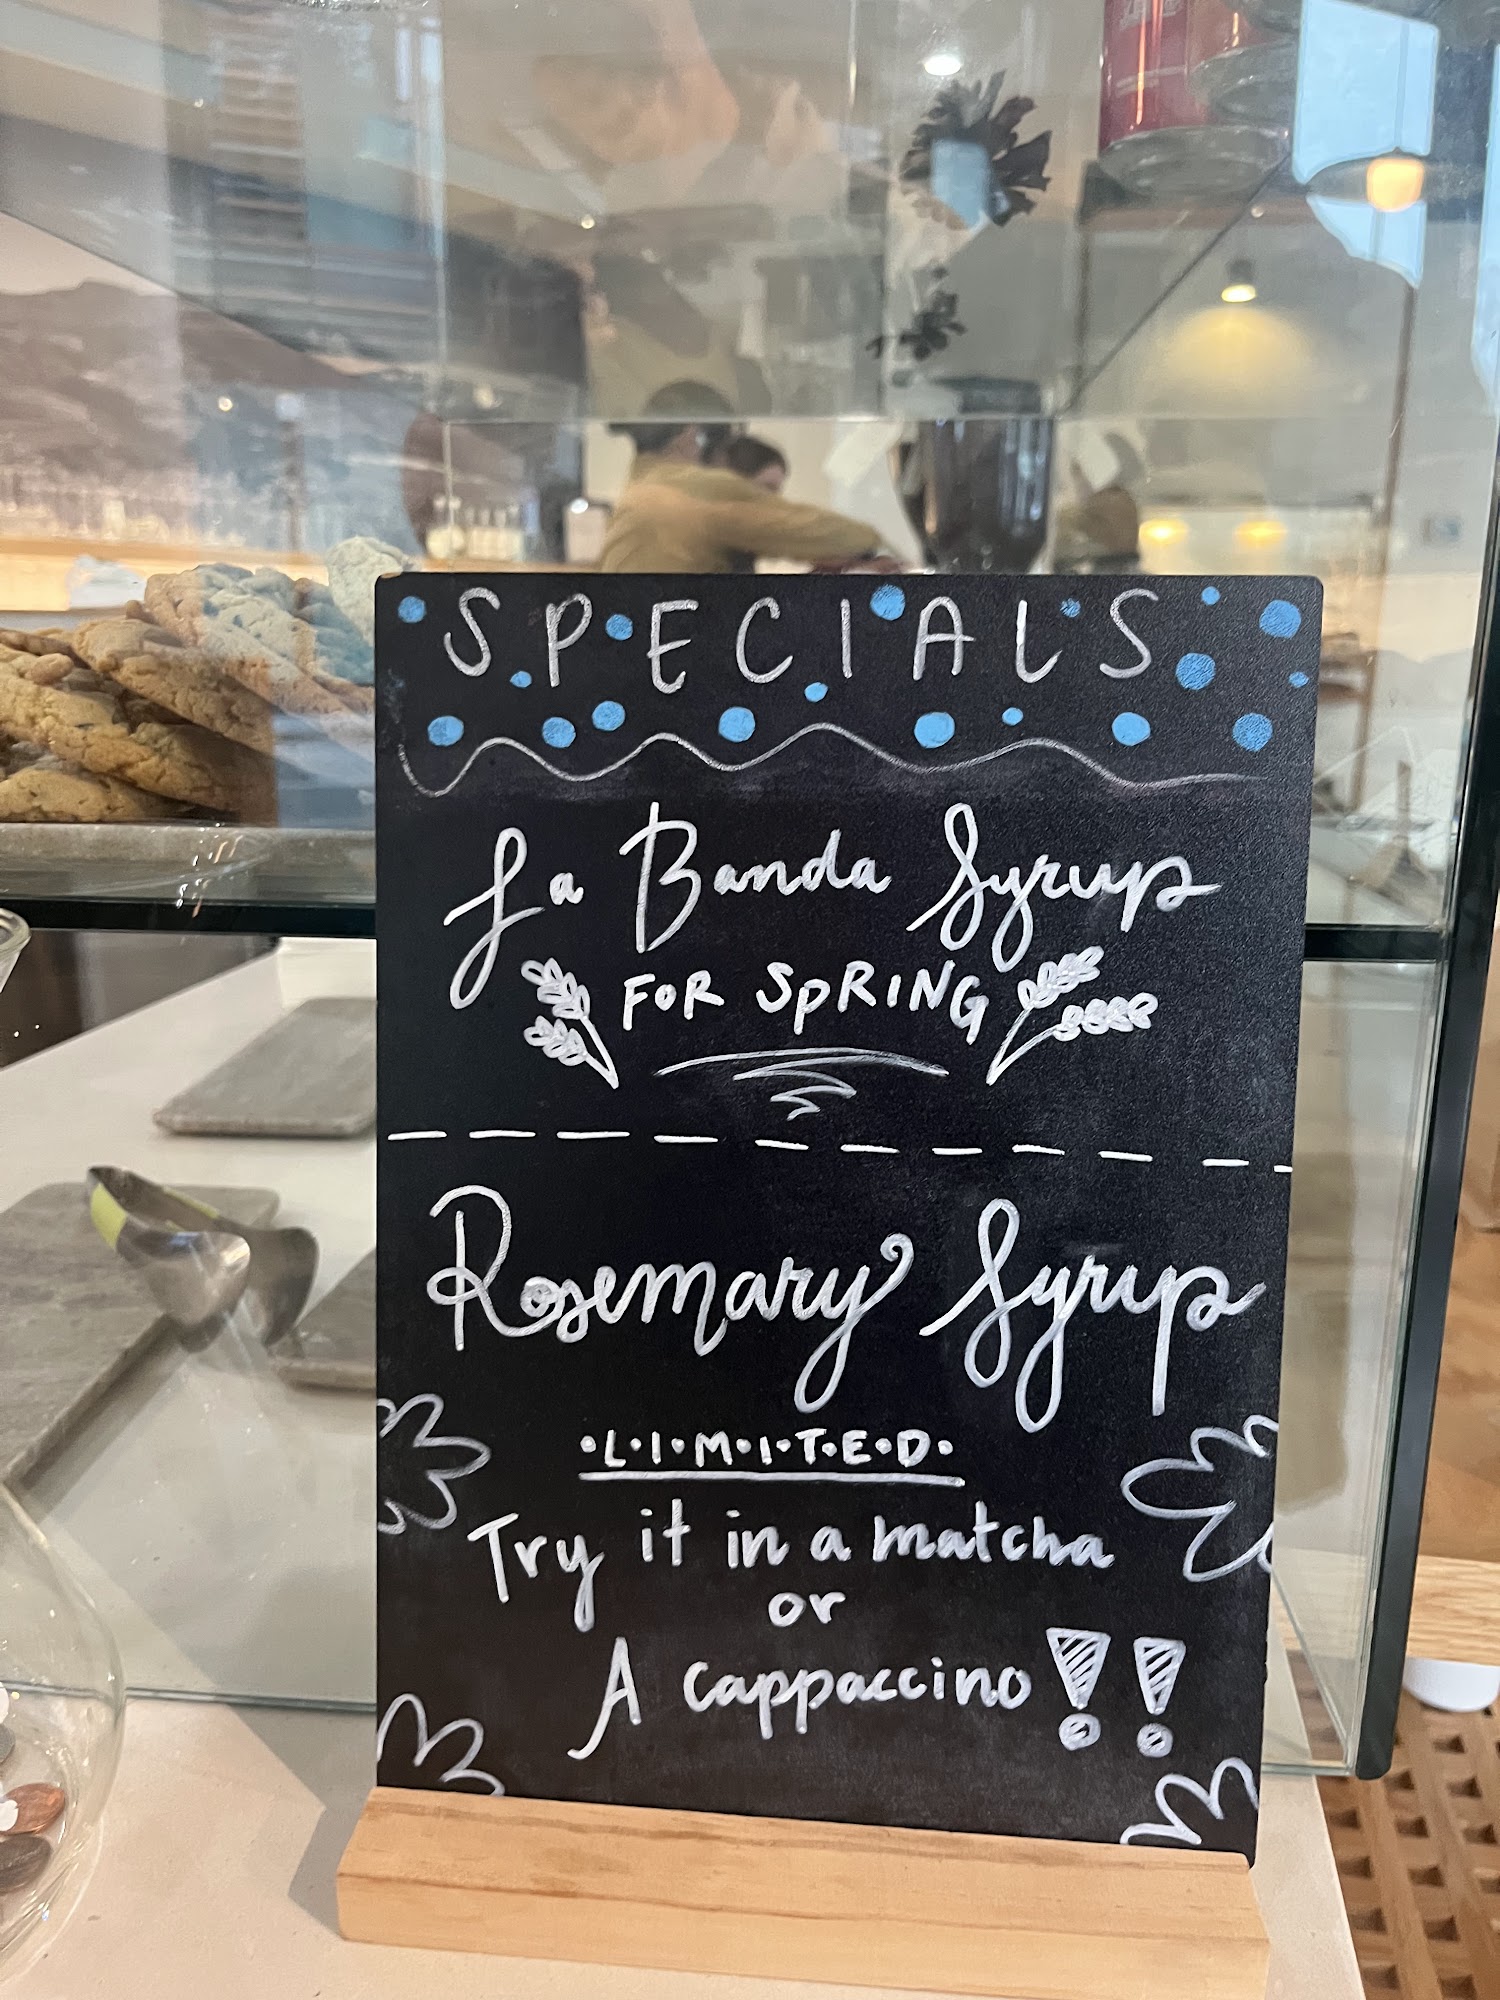 SPECIALS
La Banda Syrup
FOR SPRING
Rosemary Syrup
·L·I·M·I·T·E·D·
Try it in a matcha
or
A cappaccino!!